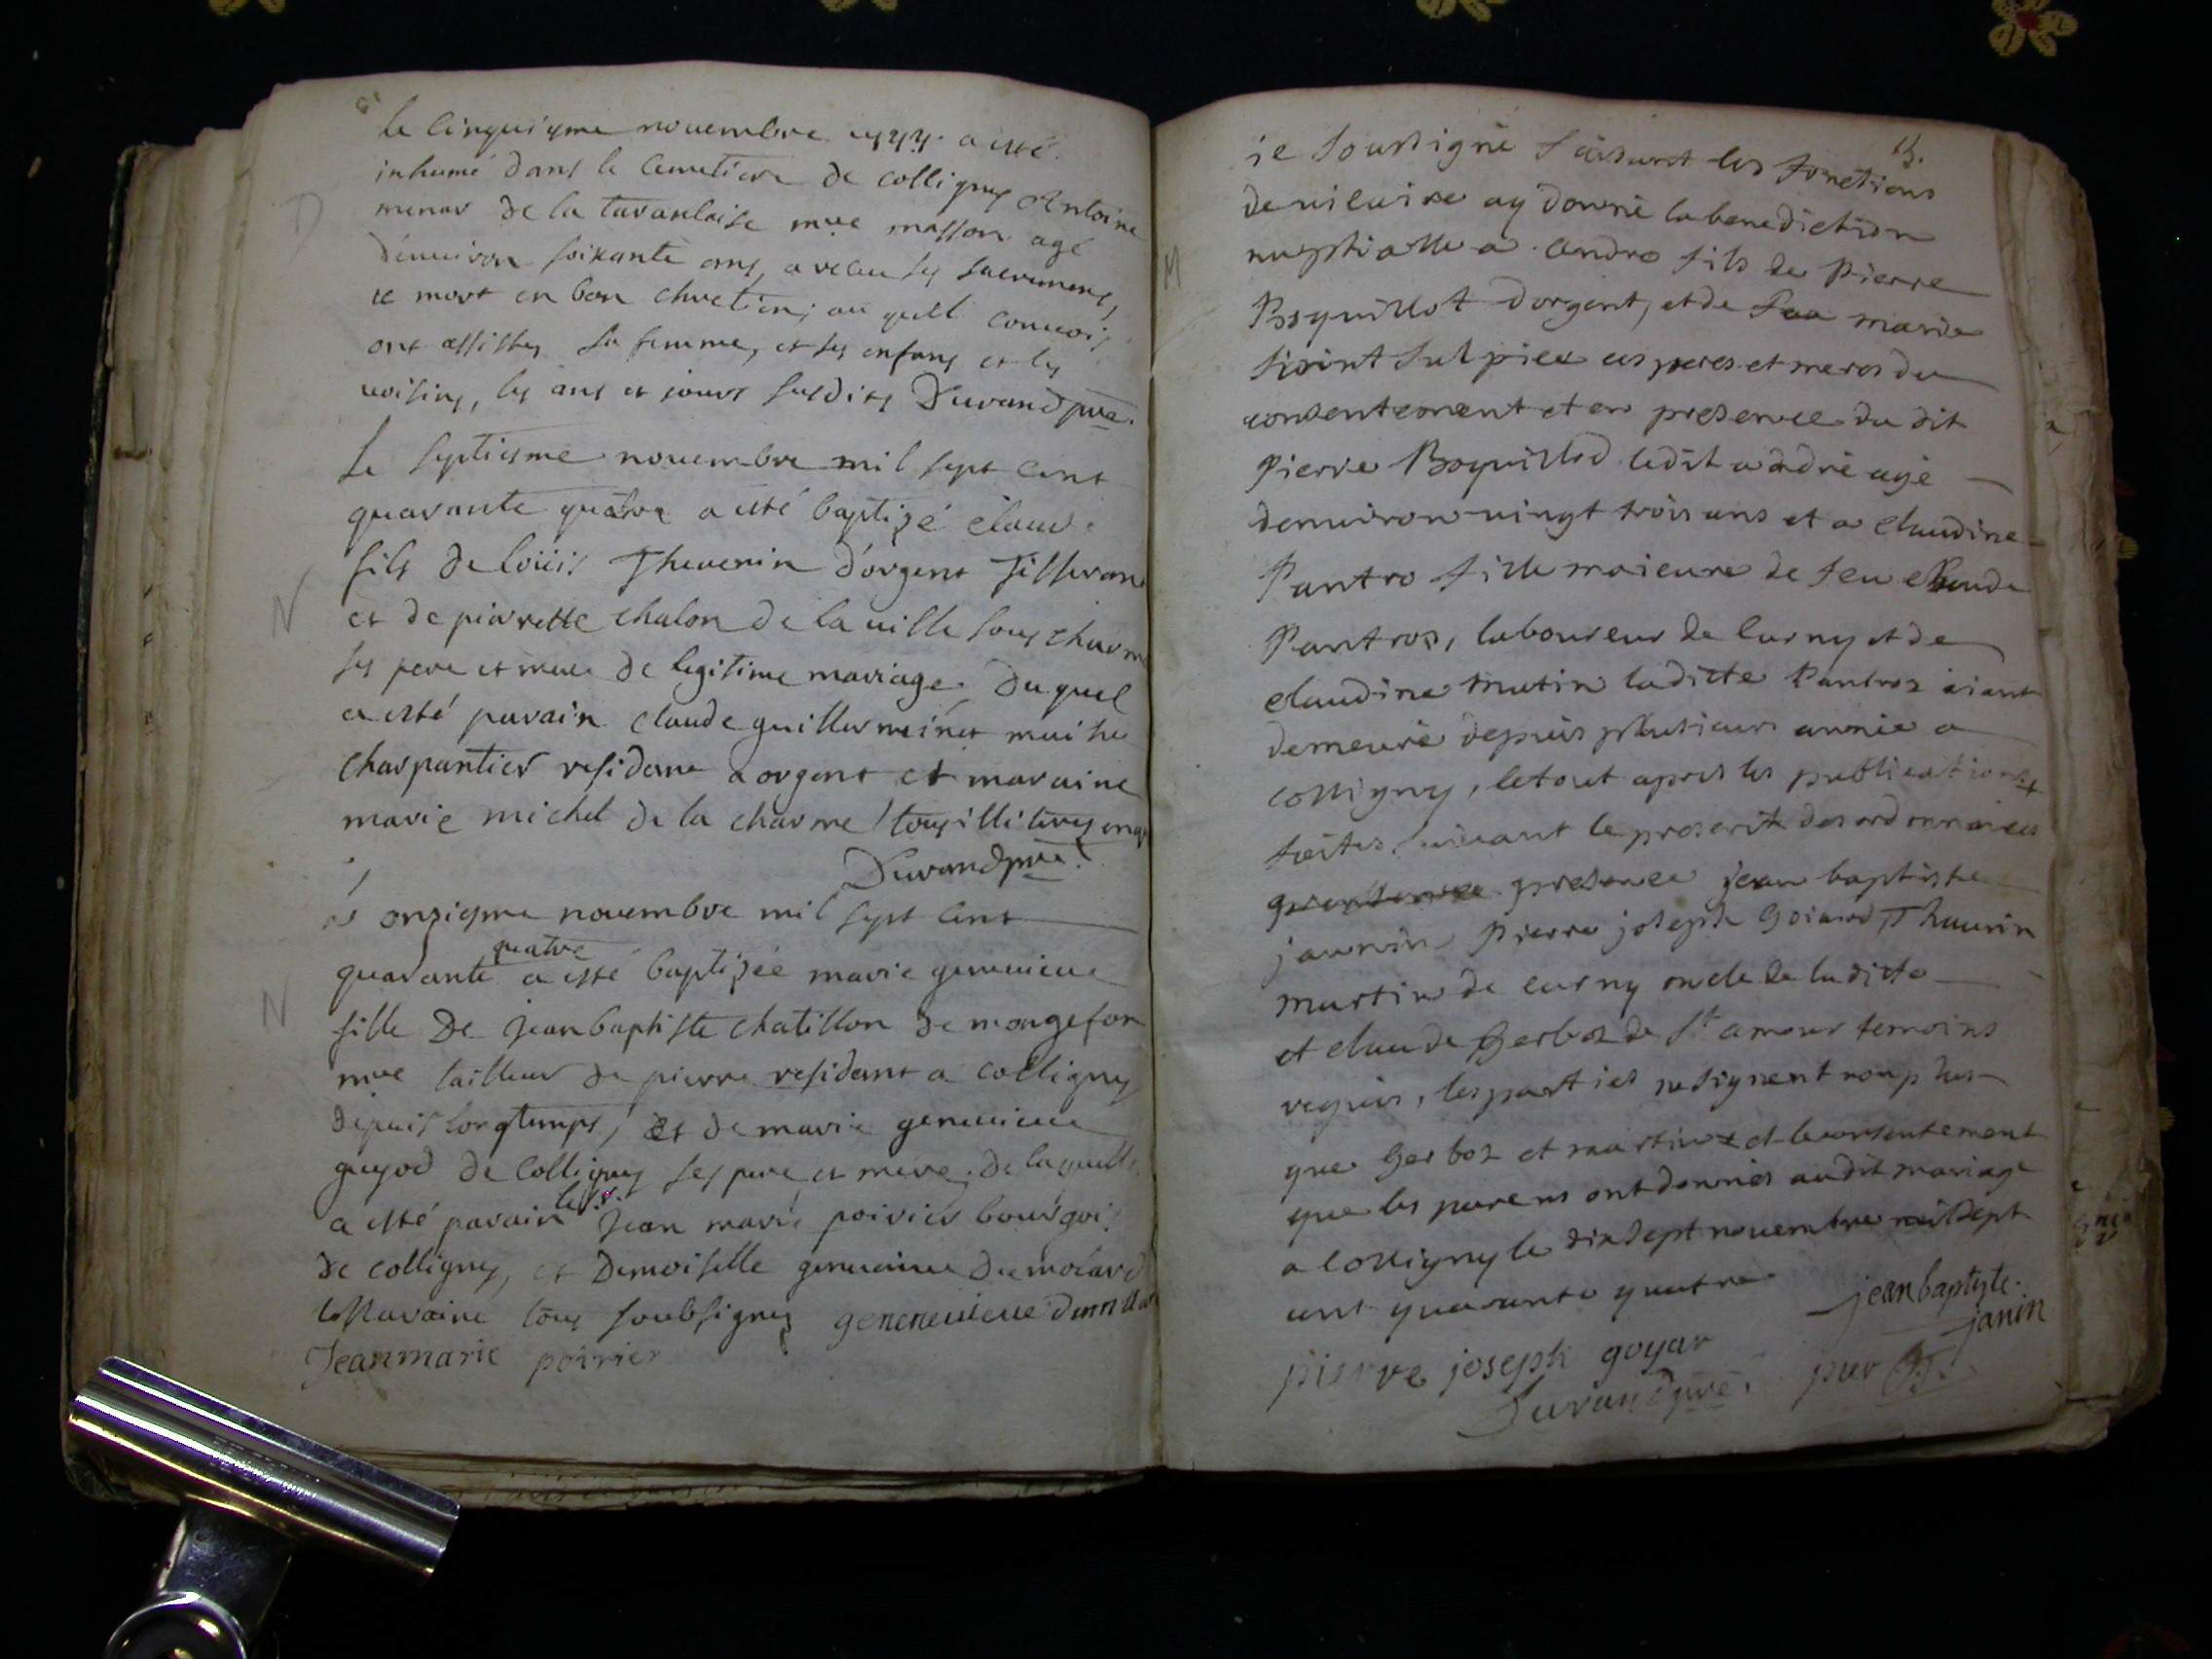 le cinquiyme novembre a esté
inhumé dans le Cemetiere de colligny Antoine
menar de la tarantaise masson agé
d'environ soixante ans, a receu ses sacremens,
et mort en bon chretien, au quel convois
ont assistes sa femme, et ses enfans et les
voisins, les ans et jours susdits Durand pre.
D
Le septiesme novembre mil sept cent
quarante quatre a esté baptizé claude
fils de loüis Thevenin d'orgent Tisseran
et de pierrette chalon de la ville sous charme
ses pere et mere de legitime mariage duquel
a esté parain claude guillerminet maitre
charpantier residant a orgent et maraine
marie michel de la charme tous illiteres
Durand pre.
N
onziyme novembre mil sept cent
quatre
quarante a esté baptizée marie genevieve
fille De jean baptiste chatillon de mongefon
mre tailleur de pierre residant a colligny
depuis longtemps, et de marie genevieve
guyod de colligny ses pere et mere. de laquelle
a esté parain le sr. Jean marie poirier bourgois
de colligny, et Demoiselle genevieve Dumolard
Maraine tous soubsignes genenevieve
Jean marie poirier
N
13.
je soussigné faisant les fonctions
de vicaire ay donné la benediction
nuptialle a andre fils de Pierre
Boquillot d'orgent, et de marie
saint Sulpice ces peres et meres du
consentement et en presence du dit
Pierre Boquillod ledit andré agé
denviron vingt trois ans et a claudine
Pantro fille majeure de feu claude
Pantros, laboureur de curny et de
claudine mutin laditte Pantros aiant
demeuré depuis plusieurs année a
colligny, le tout apres les publications
faites suivant le prescrit des ordonnances
presence jean baptiste
jannin, Pierre joseph Goiard, Thaurin
martin de curny oncle de la dicte
et claude Gerbos de St amour temoins
requis, les parties ne signent non plus
que Gerbos et martin et le consentement
que les parens ont donnés audit mariage
a Colligny le dix sept novembre mil sept
cent quarante quatre
jean baptyte
janin
pierre joseph goyar
Durand pre.
M